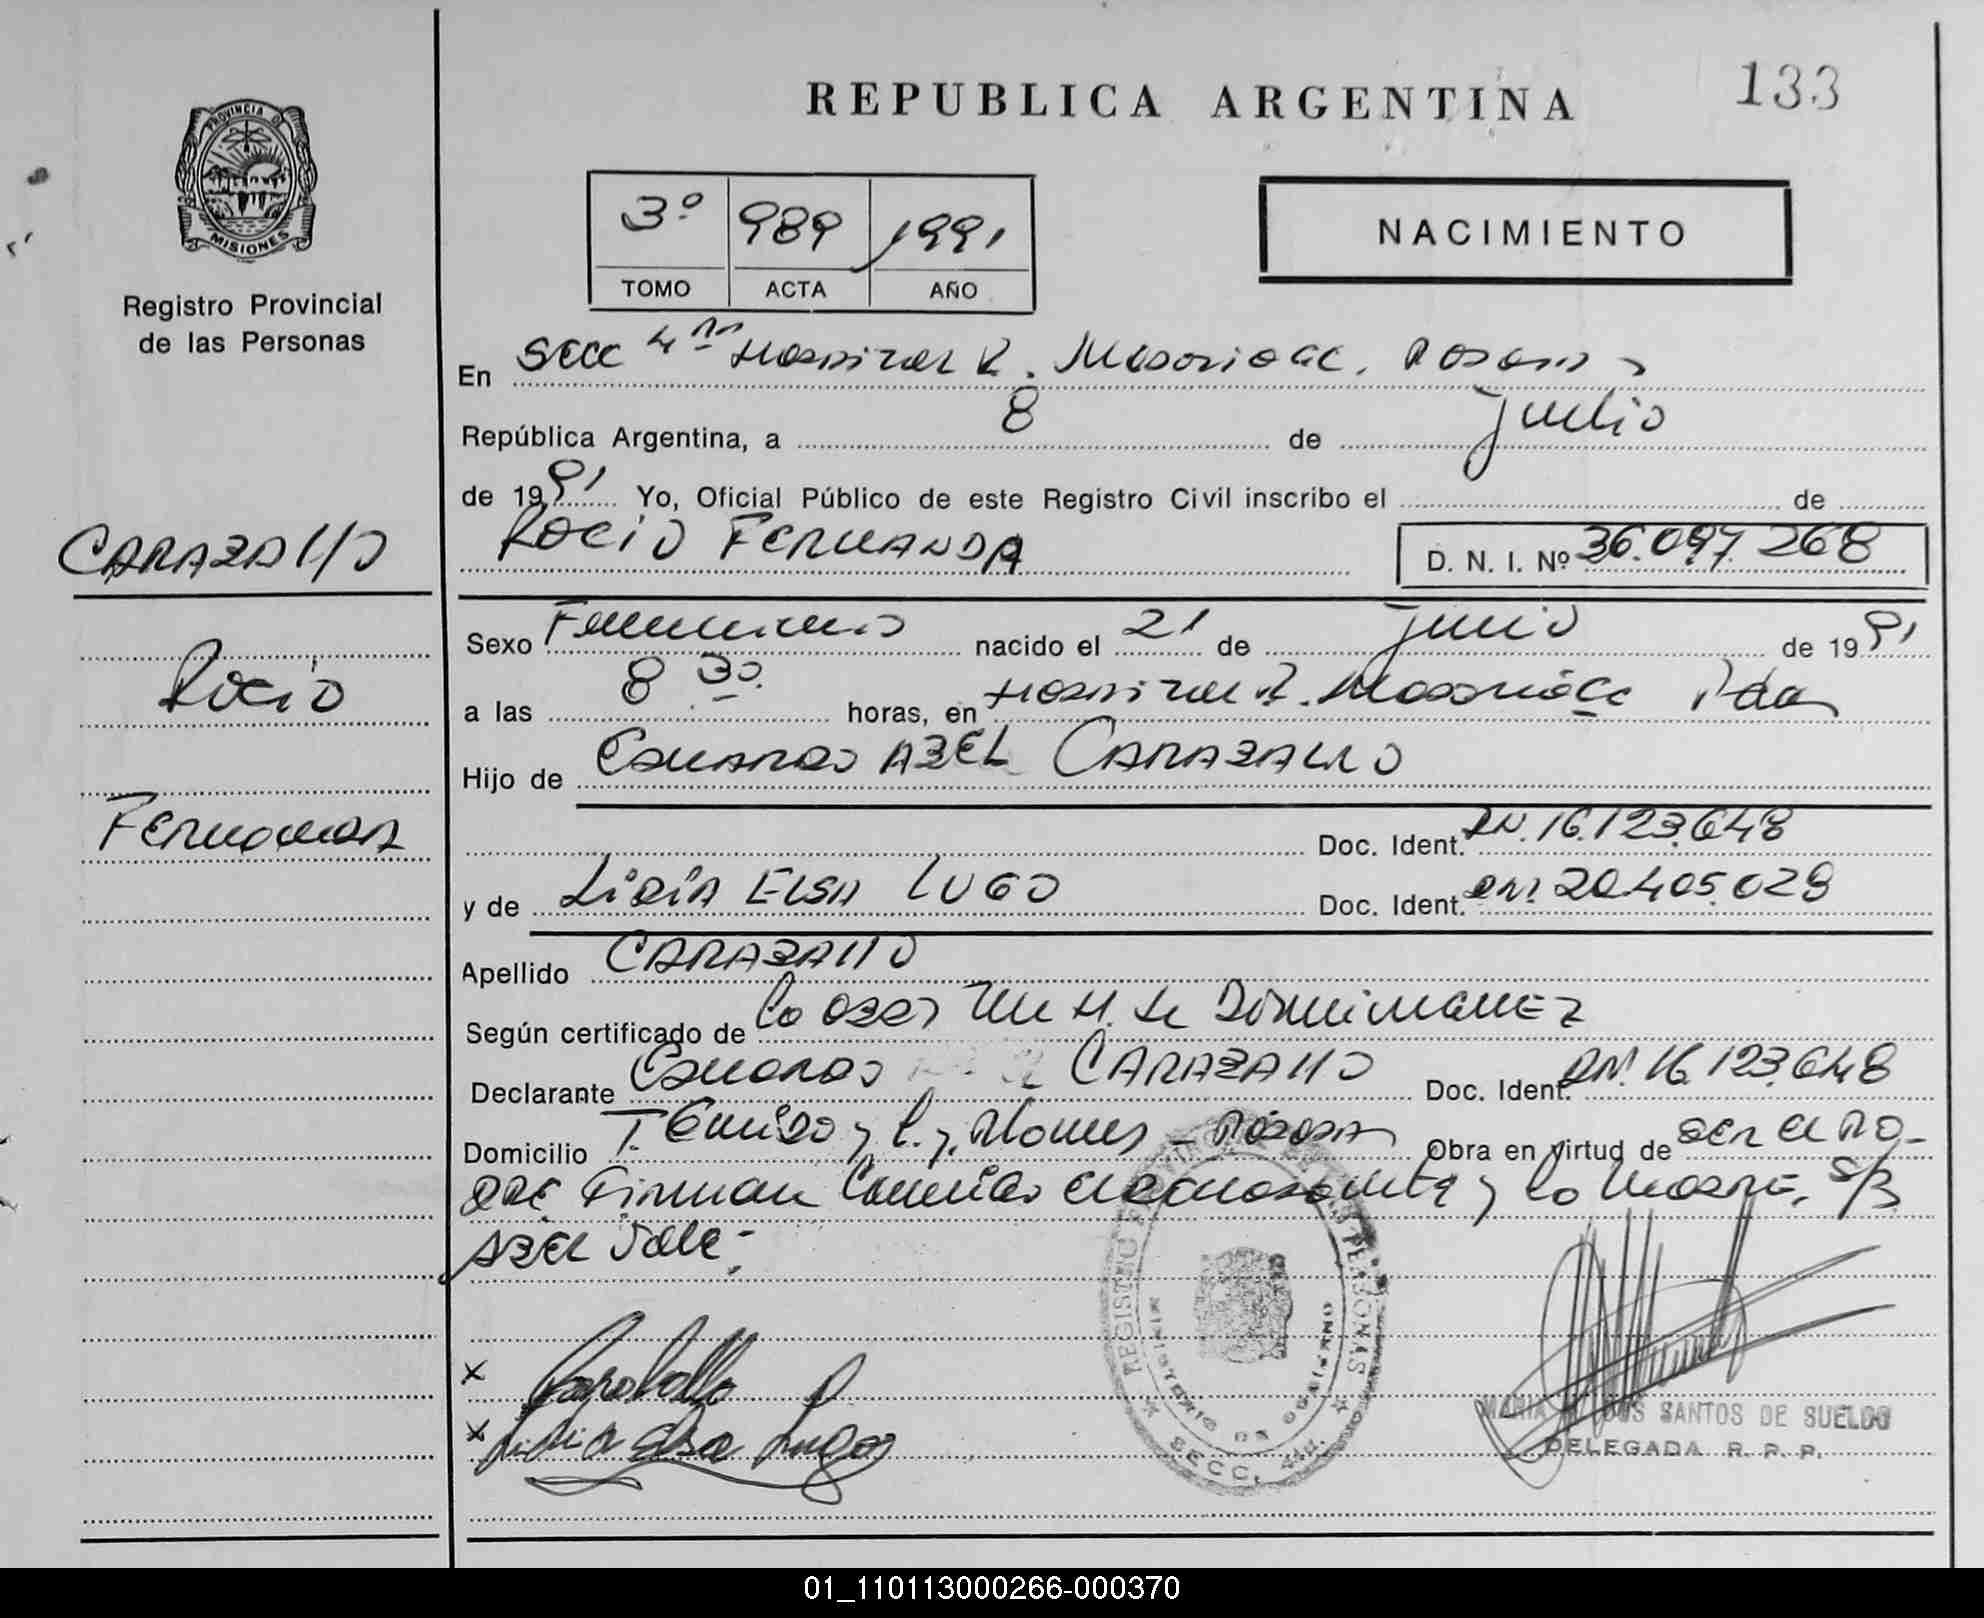 REPUBLICA ARGENTINA
133
PROVINCIA D
MISIONES
Registro Provincial
de las Personas
3º 989 1991
TOMO ACTA AÑO
NACIMIENTO
En Secc 4ta Hospital R. Madariaga. Posadas
República Argentina, a 8 de Julio
de 1991 Yo, Oficial Público de este Registro Civil inscribo el de
CARAZALLO
ROCIO FERNANDA
D. N. I. Nº 36.097.268
Sexo Femenino nacido el 21 de Junio de 1991
Rocio
a las 8 30 horas, en Hospital R. Madariaga Pdas
Hijo de Eduardo AZEL CARAZALLO
Fernanda
Doc. Ident. DNI. 16.123.648
y de Lidia ELSA LUGO Doc. Ident. DNI 20.405.028
Apellido CARAZALLO
Según certificado de la obst M. de Dominguez
Declarante Eduardo CARAZALLO Doc. Ident. DNI. 16.123.648
Domicilio y Posadas Obra en virtud de ser el pa-
dre Firman y la madre, S/B
AZEL Vale-
x
x Lidia Elsa Lugo
REGISTRO PROVINCIAL DE LAS PERSONAS
MINISTERIO DE GOBIERNO
SECC. 4ta.
MARIA DOS SANTOS DE SUELDO
DELEGADA R. P. P.
01_110113000266-000370